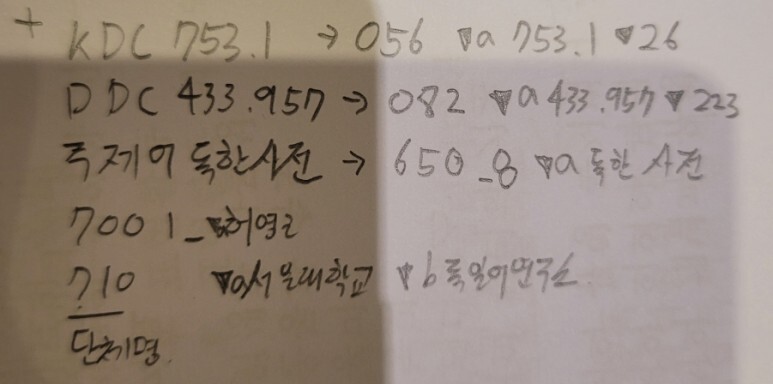 + KDC 753.1 → 056 ▼a 753.1 ▼26
DDC 433.957 → 082 ▼a 433.957 ▼223
주제어 독한사전 → 650_8 ▼a 독한 사전
7001_▼a허영
710 ▼a서울대학교 ▼b독일어연구소.
단체명.